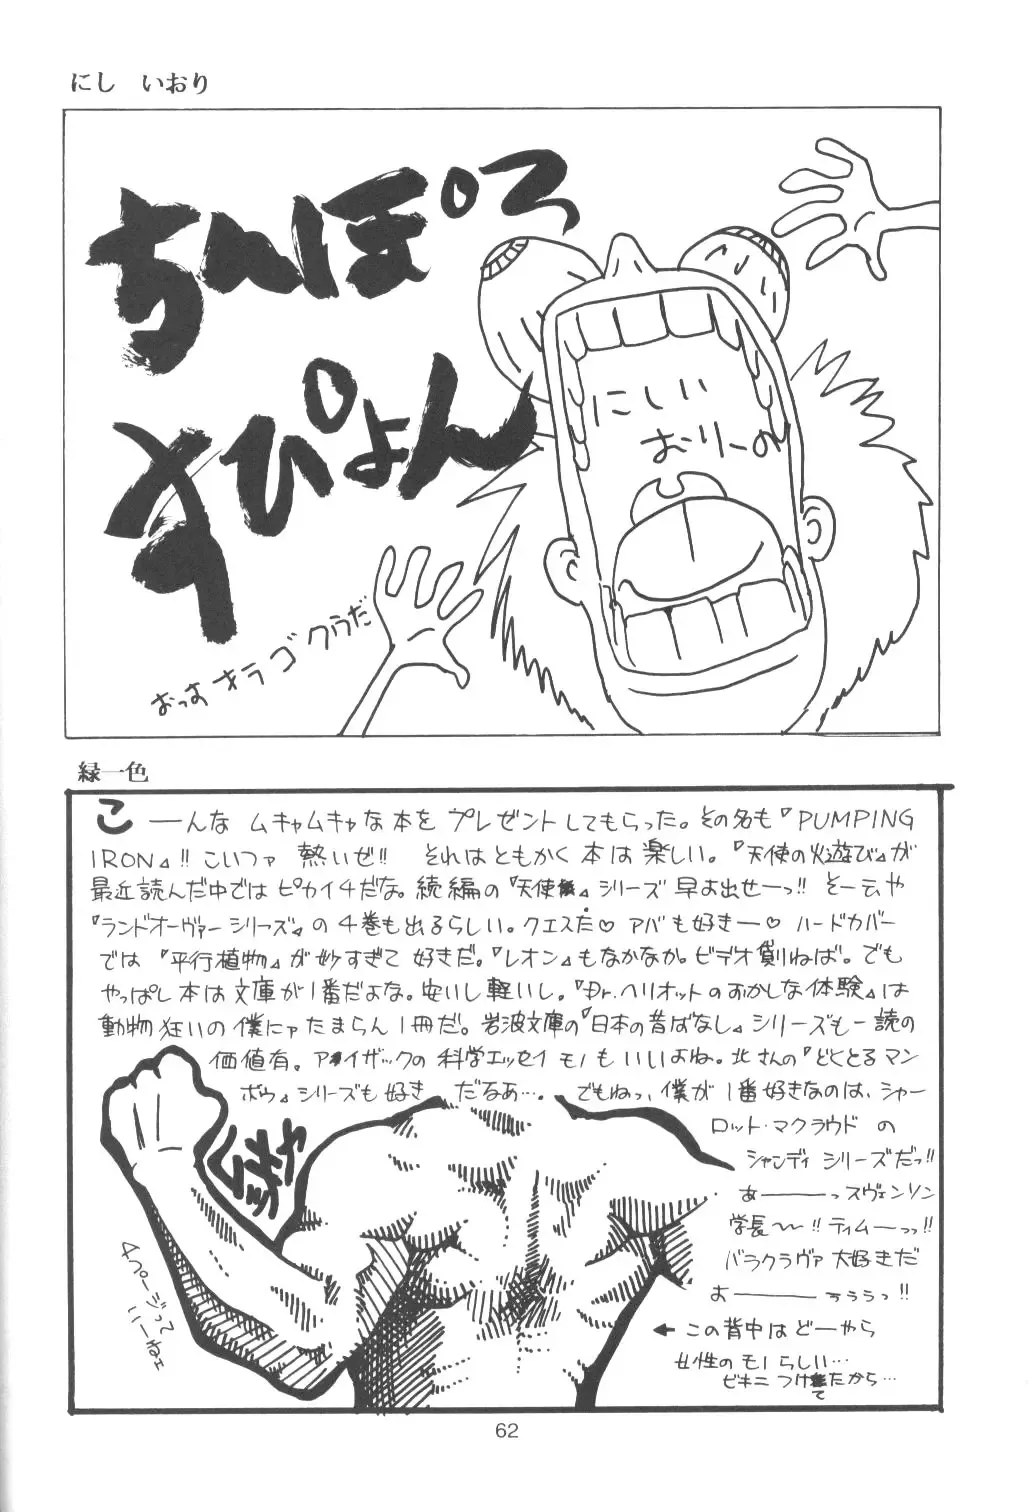 にし いおり
ちんぽろ
すぴょん
にしい
おりーの
おっす オラ ゴクウだ
緑一色
こーんな ムキャムキャな本を プレゼントしてもらった。その名も『PUMPING
IRON』!! こいつァ 熱いぜ!! それはともかく 本は楽しい。『天使の火遊び』が
最近読んだ中では ピカイチだな。続編の『天使 』シリーズ 早よ出せーっ!! そーいや
『ランドオーヴァーシリーズ』の 4巻も出るらしい。クエスた♡ アバも好きー♡ ハードカバー
では 『平行植物』が妙すぎて 好きだ。『レオン』もなかなか。ビデオ借りねば。でも
やっぱし 本は文庫が1番だよな。安いし軽いし。『Dr.ヘリオットのおかしな体験』は
動物狂いの 僕にァ たまらん1冊だ。岩波文庫の『日本の昔ばなし』シリーズも一読の
価値有。アイザックの 科学エッセイ モノもいいよね。北さんの『どくとるマン
ボウ』シリーズも 好き だなあ…。でもねっ、僕が1番好きなのは、シャー
ロット・マクラウド の
シャンディ シリーズだっ!!
あーーーっスヴェンソン
学長〜〜!! ティムーっっ!!
バラクラヴァ 大好きだ
おーーーぅぅぅっ!!
← この背中は どーやら
女性のモノらしい…
ビキニ つけてたから…
4ページって
いーねェ
62